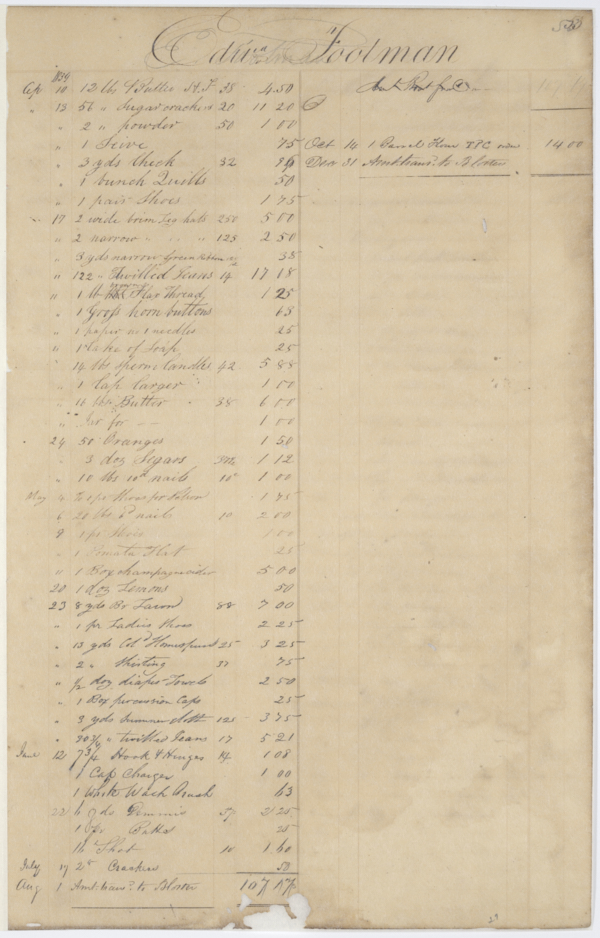 Edw Footman
1839
10 12 lbs Butter 38 4.50
" 13 56 " Sugar crackers 20 11 20
" 2 " powder 50 1 00
" 1 75
" 3 yds Check 32 96
" 1 bunch Quills 50
" 1 pair Shoes 1 75
" 17 2 wide brim Leg hats 250 5 00
" 2 narrow " " " 125 2 50
" 3 yds narrow Green 38
" 122 " Twilled Jeans 14 17 18
" 1 lb Flax Thread 1 25
" 1 Gross horn buttons 63
" 1 paper needles 25
" 1 Cake of Soap 25
14 lbs sperm Candles 42 5 88
" 1 Cap Carger 1 00
" 16 lbs Butter 38 6 00
" Jar for — 1 00
24 50 Oranges 1 50
3 doz Segars 1 12
" 10 lbs 10d nails 10 1 00
May 4 1 75
6 20 lbs d nails 10 2 00
9 1 pr Shoes 1 00
" 1 Hat 25
" 1 Box champagne cider 5 00
20 1 doz Lemons 50
23 8 yds Lawn 88 7 00
" 1 pr Ladies Shoes 2 25
" 13 yds Cold Homespun 25 3 25
" 2 " Shirting 37 75
" 1/2 doz diaper Towels 2 50
" 1 Box percussion Caps 25
" 3 yds Summer cloth 125 3 75
" twilled Jeans 17 5 21
June 12 7 3/4 Hook & Hinges 14 1 08
1 Cap Charger 1 00
1 Wash Brush 63
22 6 yds 2 25
1 pr 25
16 Shot 10 1 60
July 17 2 Crackers 50
Aug 1 Amt trans. to Blotter 107 57
Oct 14 1 Barrel Flour 14 00
Dec 31 Amt trans. to Blotter